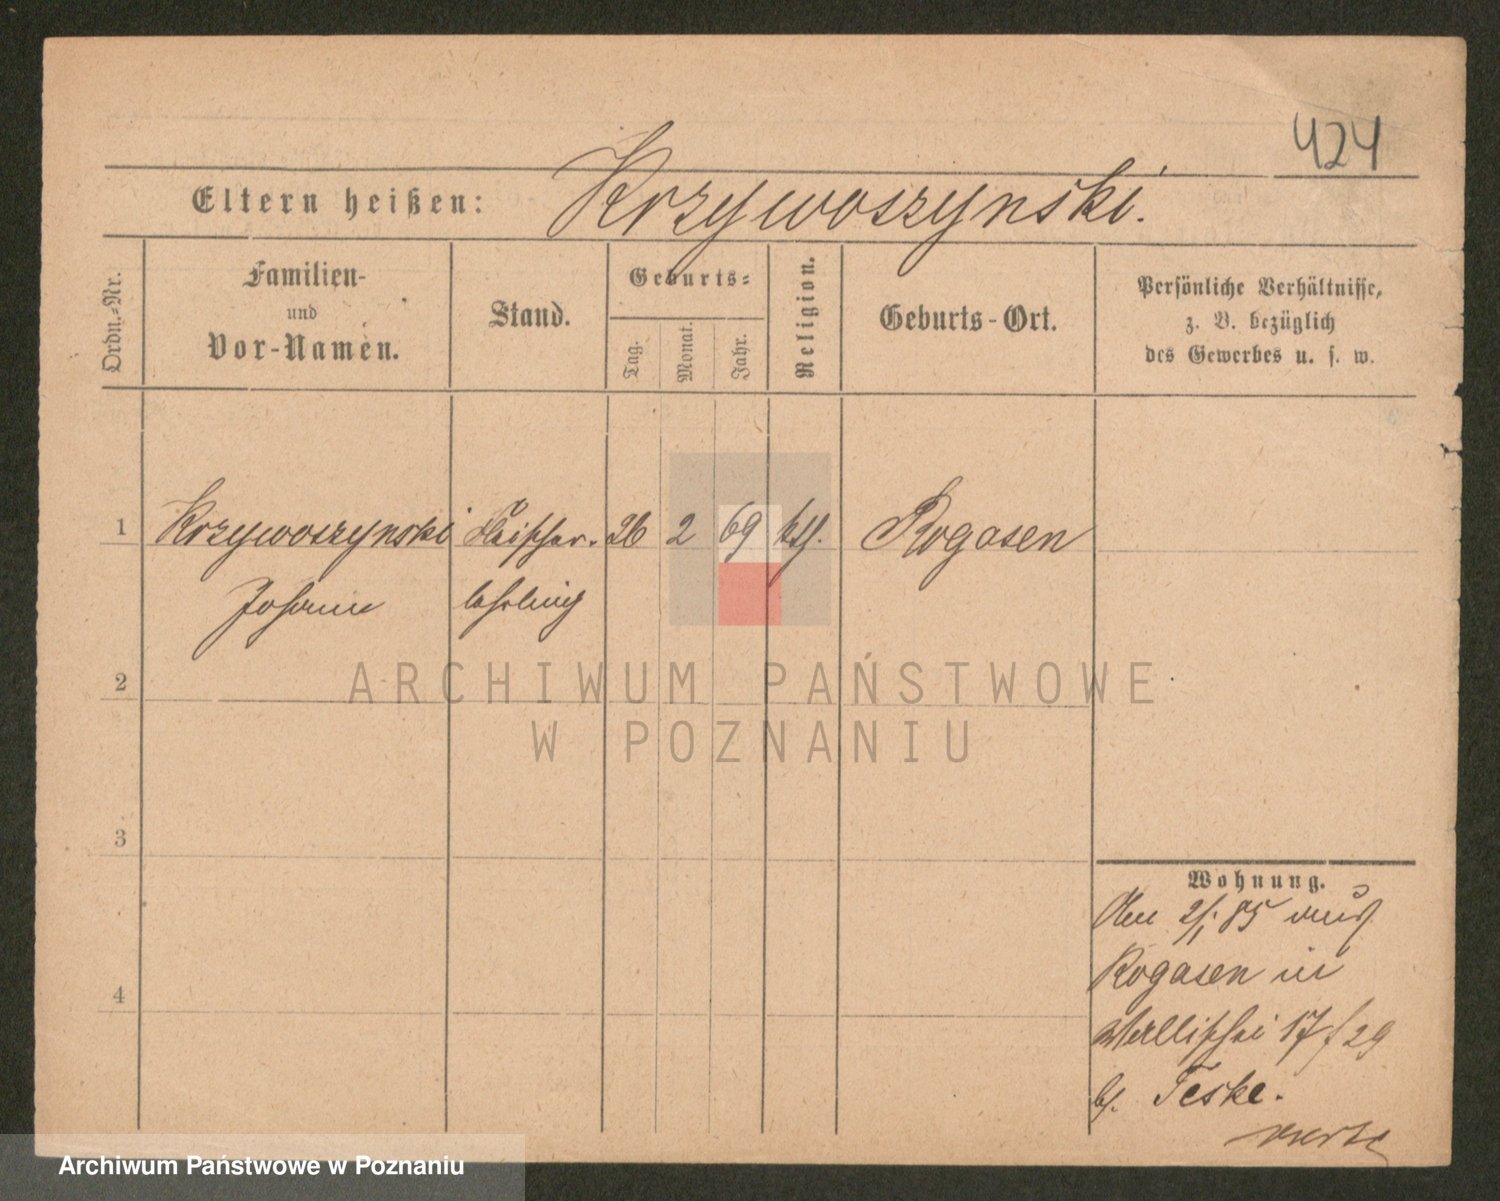 424
Eltern heißen: Krzywoszynski.
Ordn.-Nr.
Familien-
und
Vor-Namen.
Stand.
Geburts-
Tag.
Monat.
Jahr.
Religion.
Geburts-Ort.
Persönliche Verhältnisse,
z. B. bezüglich
des Gewerbes u. s. w.
1 Krzywoszynski Fleischer- 26 2 69 kth. Rogasen
Johann lehrling
2
ARCHIWUM PAŃSTWOWE
W POZNANIU
3
4
Wohnung.
Am 2/1. 85 aus
Rogasen in
Wallischei 17/29
b. Teske.
Archiwum Państwowe w Poznaniu